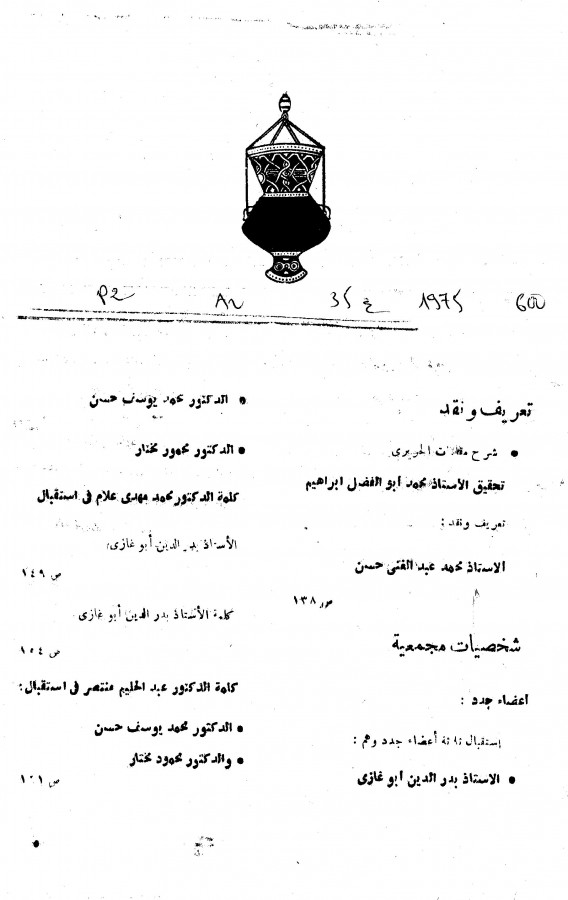 P2 An 35 ع 1975 600
تعريف ونقد
• شرح مقامات الحريرى
تحقيق الأستاذ محمد أبو الفضل ابراهيم
تعريف ونقد :
الاستاذ محمد عبد الغنى حسن
ص ١٣٨
شخصيات مجمعية
أعضاء جدد :
إستقبال ثلاثة أعضاء جدد وهم :
• الاستاذ بدر الدين أبو غازى
• الدكتور محمد يوسف حسن
• الدكتور محمود مختار
كلمة الدكتور محمد مهدى علام فى استقبال
الأستاذ بدر الدين أبو غازى
ص ١٤٩
كلمة الأستاذ بدر الدين أبو غازى
ص ١٥٤
كلمة الدكتور عبد الحليم منتصر فى استقبال :
• الدكتور محمد يوسف حسن
• والدكتور محمود مختار
ص